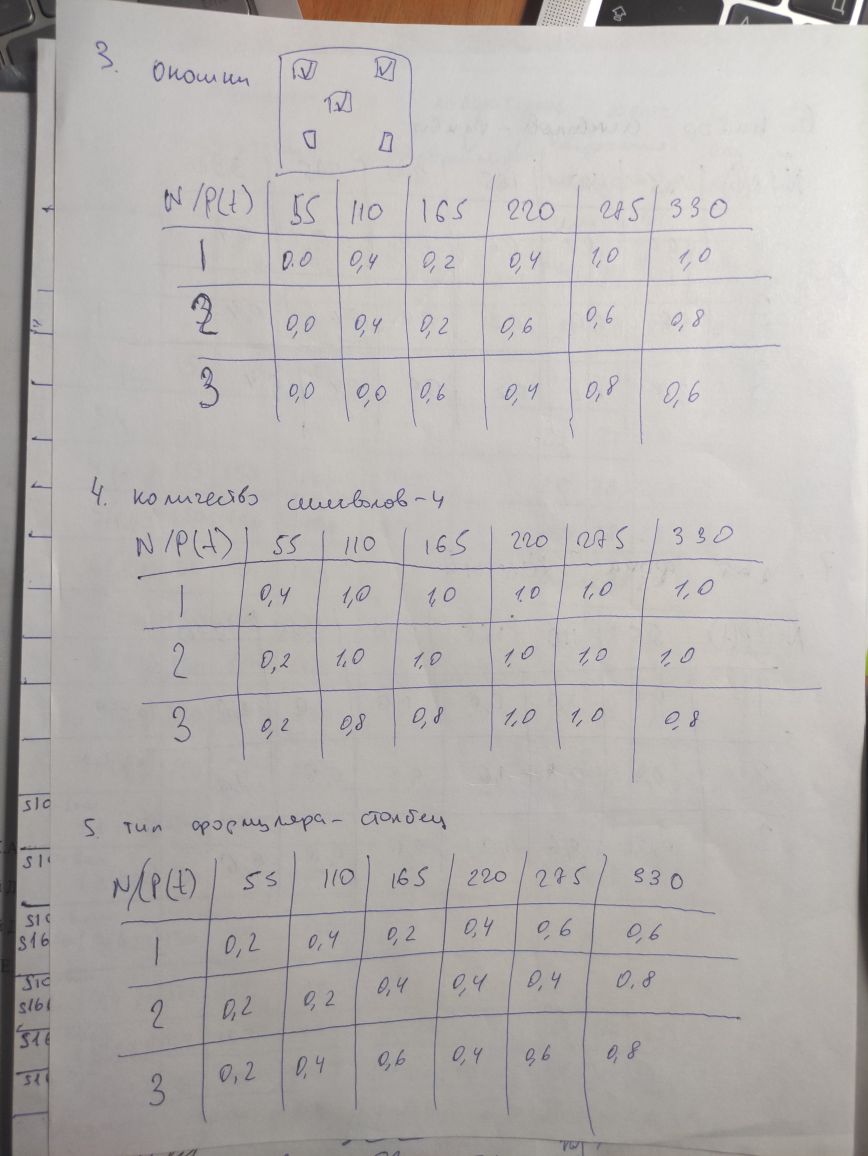 3. Окошки
N/P(t) 55 110 165 220 275 330
1 0.0 0,4 0,2 0,4 1,0 1,0
2 0,0 0,4 0,2 0,6 0,6 0,8
3 0,0 0,0 0,6 0,4 0,8 0,6
4. количество символов-4
N/P(t) 55 110 165 220 275 330
1 0,4 1,0 1,0 1.0 1,0 1,0
2 0,2 1,0 1,0 1,0 1,0 1,0
3 0,2 0,8 0,8 1,0 1,0 0,8
5. тип формуляра- столбец
N/P(t) 55 110 165 220 275 330
1 0,2 0,4 0,2 0,4 0,6 0,6
2 0,2 0,2 0,4 0,4 0,4 0.8
3 0,2 0,4 0,6 0,4 0,6 0,8